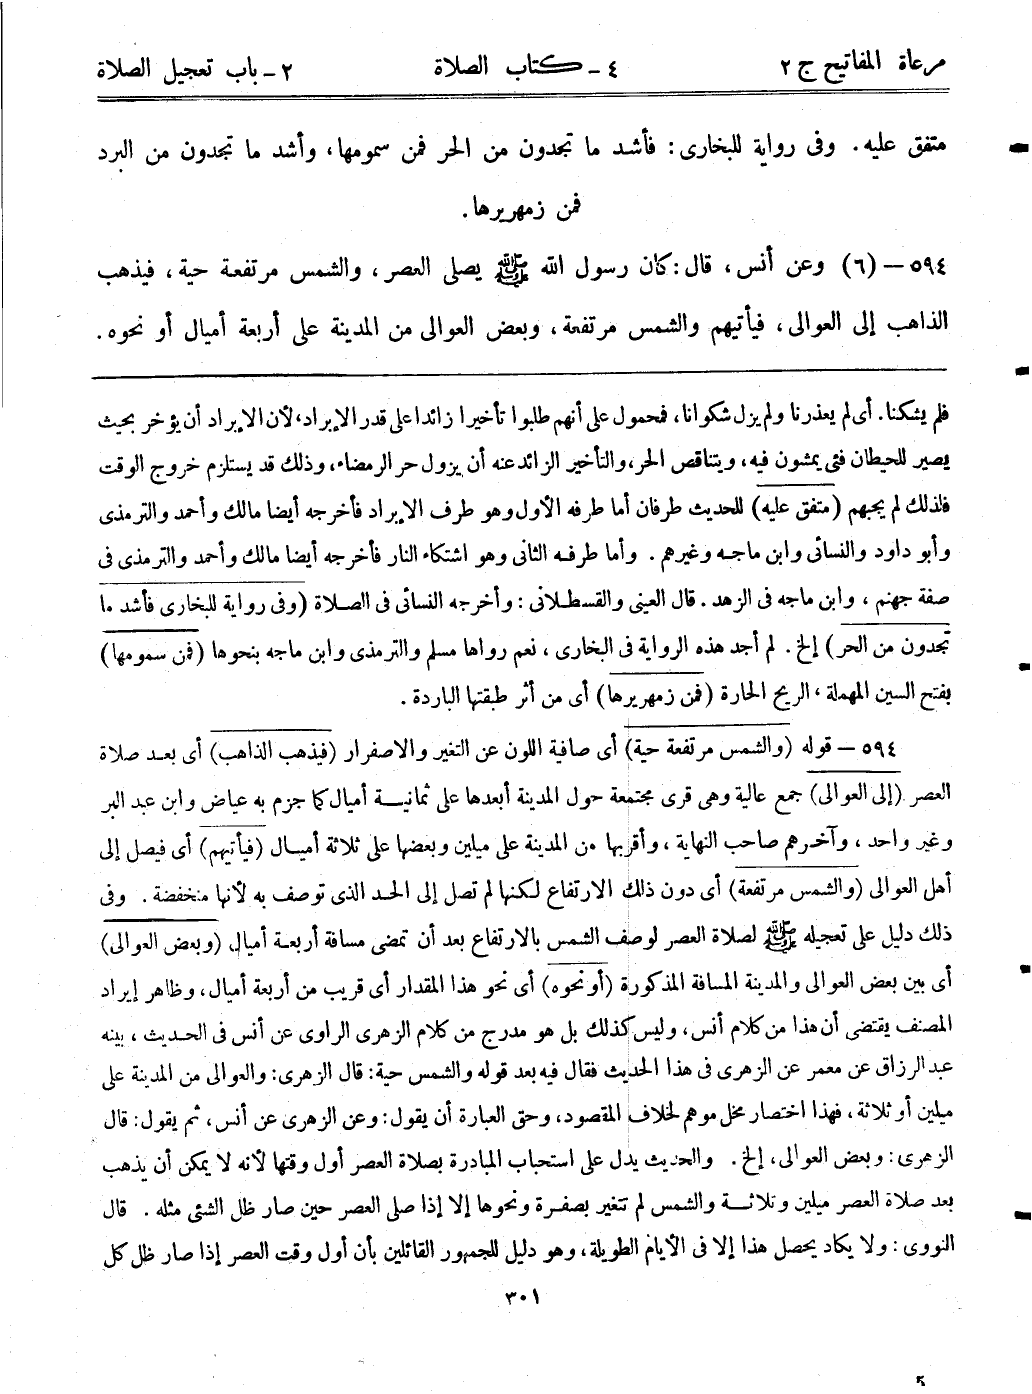 مرعاة المفاتيح ج ٢ ٤ ـ كتاب الصلاة ٢ ـ باب تعجيل الصلاة
متفق عليه. وفى رواية للبخارى: فأشد ما تجدون من الحر فمن سمومها، وأشد ما تجدون من البرد
فمن زمهريرها.
٥٩٤ – (٦) وعن أنس، قال: كان رسول الله ﷺ يصلى العصر، والشمس مرتفعة حية، فيذهب
الذاهب إلى العوالى، فيأتيهم والشمس مرتفعة، وبعض العوالى من المدينة على أربعة أميال أو نحوه.
فلم يشكنا. أى لم يعذرنا ولم يزل شكوانا، فمحمول على أنهم طلبوا تأخيرا زائدا على قدر الإبراد، لأن الإبراد أن يؤخر بحيث
يصير للحيطان فئى يمشون فيه، ويتناقص الحر، والتأخير الزائد عنه أن يزول حر الرمضاء، وذلك قد يستلزم خروج الوقت
فلذلك لم يجبهم (متفق عليه) للحديث طرفان أما طرفه الأول وهو طرف الإبراد فأخرجه أيضا مالك وأحمد والترمذى
وأبو داود والنسائى وابن ماجه وغيرهم. وأما طرفه الثانى وهو اشتكاء النار فأخرجه أيضا مالك وأحمد والترمذى فى
صفة جهنم، وابن ماجه فى الزهد. قال العينى والقسطلانى: وأخرجه النسائى فى الصلاة (وفى رواية للبخارى فأشد ما
تجدون من الحر) إلخ. لم أجد هذه الرواية فى البخارى، نعم رواها مسلم والترمذى وابن ماجه بنحوها (فمن سمومها)
بفتح السين المهملة، الريح الحارة (فمن زمهريرها) أى من أثر طبقتها الباردة.
٥٩٤ – قوله (والشمس مرتفعة حية) أى صافية اللون عن التغير والاصفرار (فيذهب الذاهب) أى بعد صلاة
العصر (إلى العوالى) جمع عالية وهى قرى مجتمعة حول المدينة أبعدها على ثمانية أميال كما جزم به عياض وابن عبد البر
وغير واحد، وآخرهم صاحب النهاية، وأقربها من المدينة على ميلين وبعضها على ثلاثة أميال (فيأتيهم) أى فيصل إلى
أهل العوالى (والشمس مرتفعة) أى دون ذلك الارتفاع لكنها لم تصل إلى الحد الذى توصف به لأنها منخفضة. وفى
ذلك دليل على تعجيله ﷺ لصلاة العصر لوصف الشمس بالارتفاع بعد أن تمضى مسافة أربعة أميال (وبعض العوالى)
أى بين بعض العوالى والمدينة المسافة المذكورة (أو نحوه) أى نحو هذا المقدار أى قريب من أربعة أميال، وظاهر إيراد
المصنف يقتضى أن هذا من كلام أنس، وليس كذلك بل هو مدرج من كلام الزهرى الراوى عن أنس فى الحديث، بينه
عبد الرزاق عن معمر عن الزهرى فى هذا الحديث فقال فيه بعد قوله والشمس حية: قال الزهرى: والعوالى من المدينة على
ميلين أو ثلاثة، فهذا اختصار مخل موهم لخلاف المقصود، وحق العبارة أن يقول: وعن الزهرى عن أنس، ثم يقول: قال
الزهرى: وبعض العوالى، إلخ. والحديث يدل على استحباب المبادرة بصلاة العصر أول وقتها لأنه لا يمكن أن يذهب
بعد صلاة العصر ميلين وثلاثة والشمس لم تتغير بصفرة ونحوها إلا إذا صلى العصر حين صار ظل الشئى مثله. قال
النووى: ولا يكاد يحصل هذا إلا فى الأيام الطويلة، وهو دليل للجمهور القائلين بأن أول وقت العصر إذا صار ظل كل
٣٠١
5